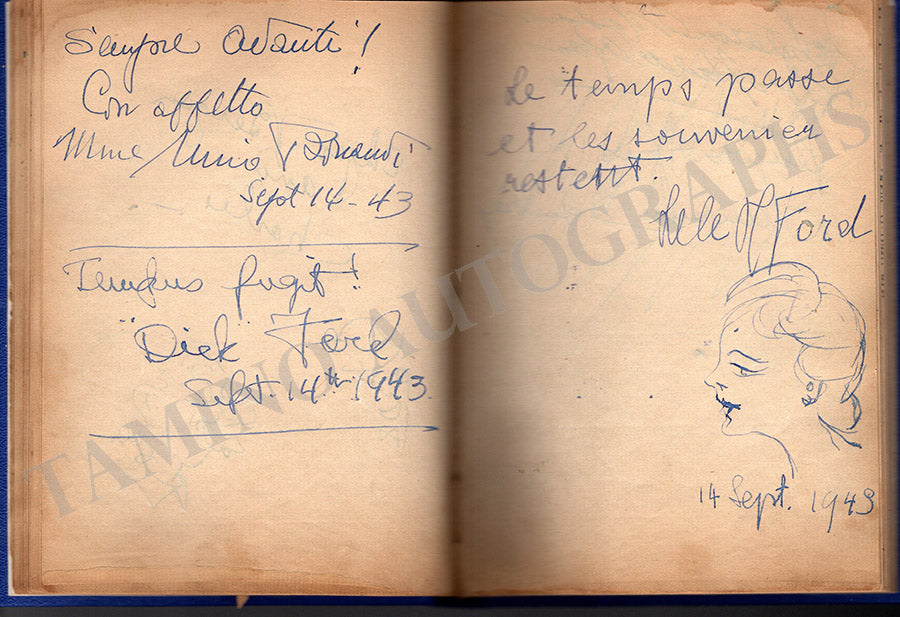 Sempre Avanti!
Con affetto
Mme
Sept 14 - 43
Tempus fugit!
"Dick" Ford
Sept. 14th 1943
Le temps passe
et les souvenier
restent.
Lele Ford
14 Sept. 1943
TAMINO AUTOGRAPHS